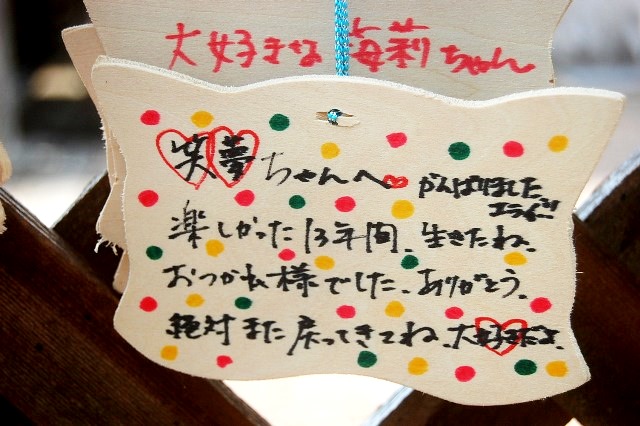 大好きな海莉ちゃん
笑夢ちゃんへ がんばりました
エライ!!
楽しかった13年間、生きたね、
おつかれ様でした、ありがとう。
絶対また戻ってきてね、大好きだよ、